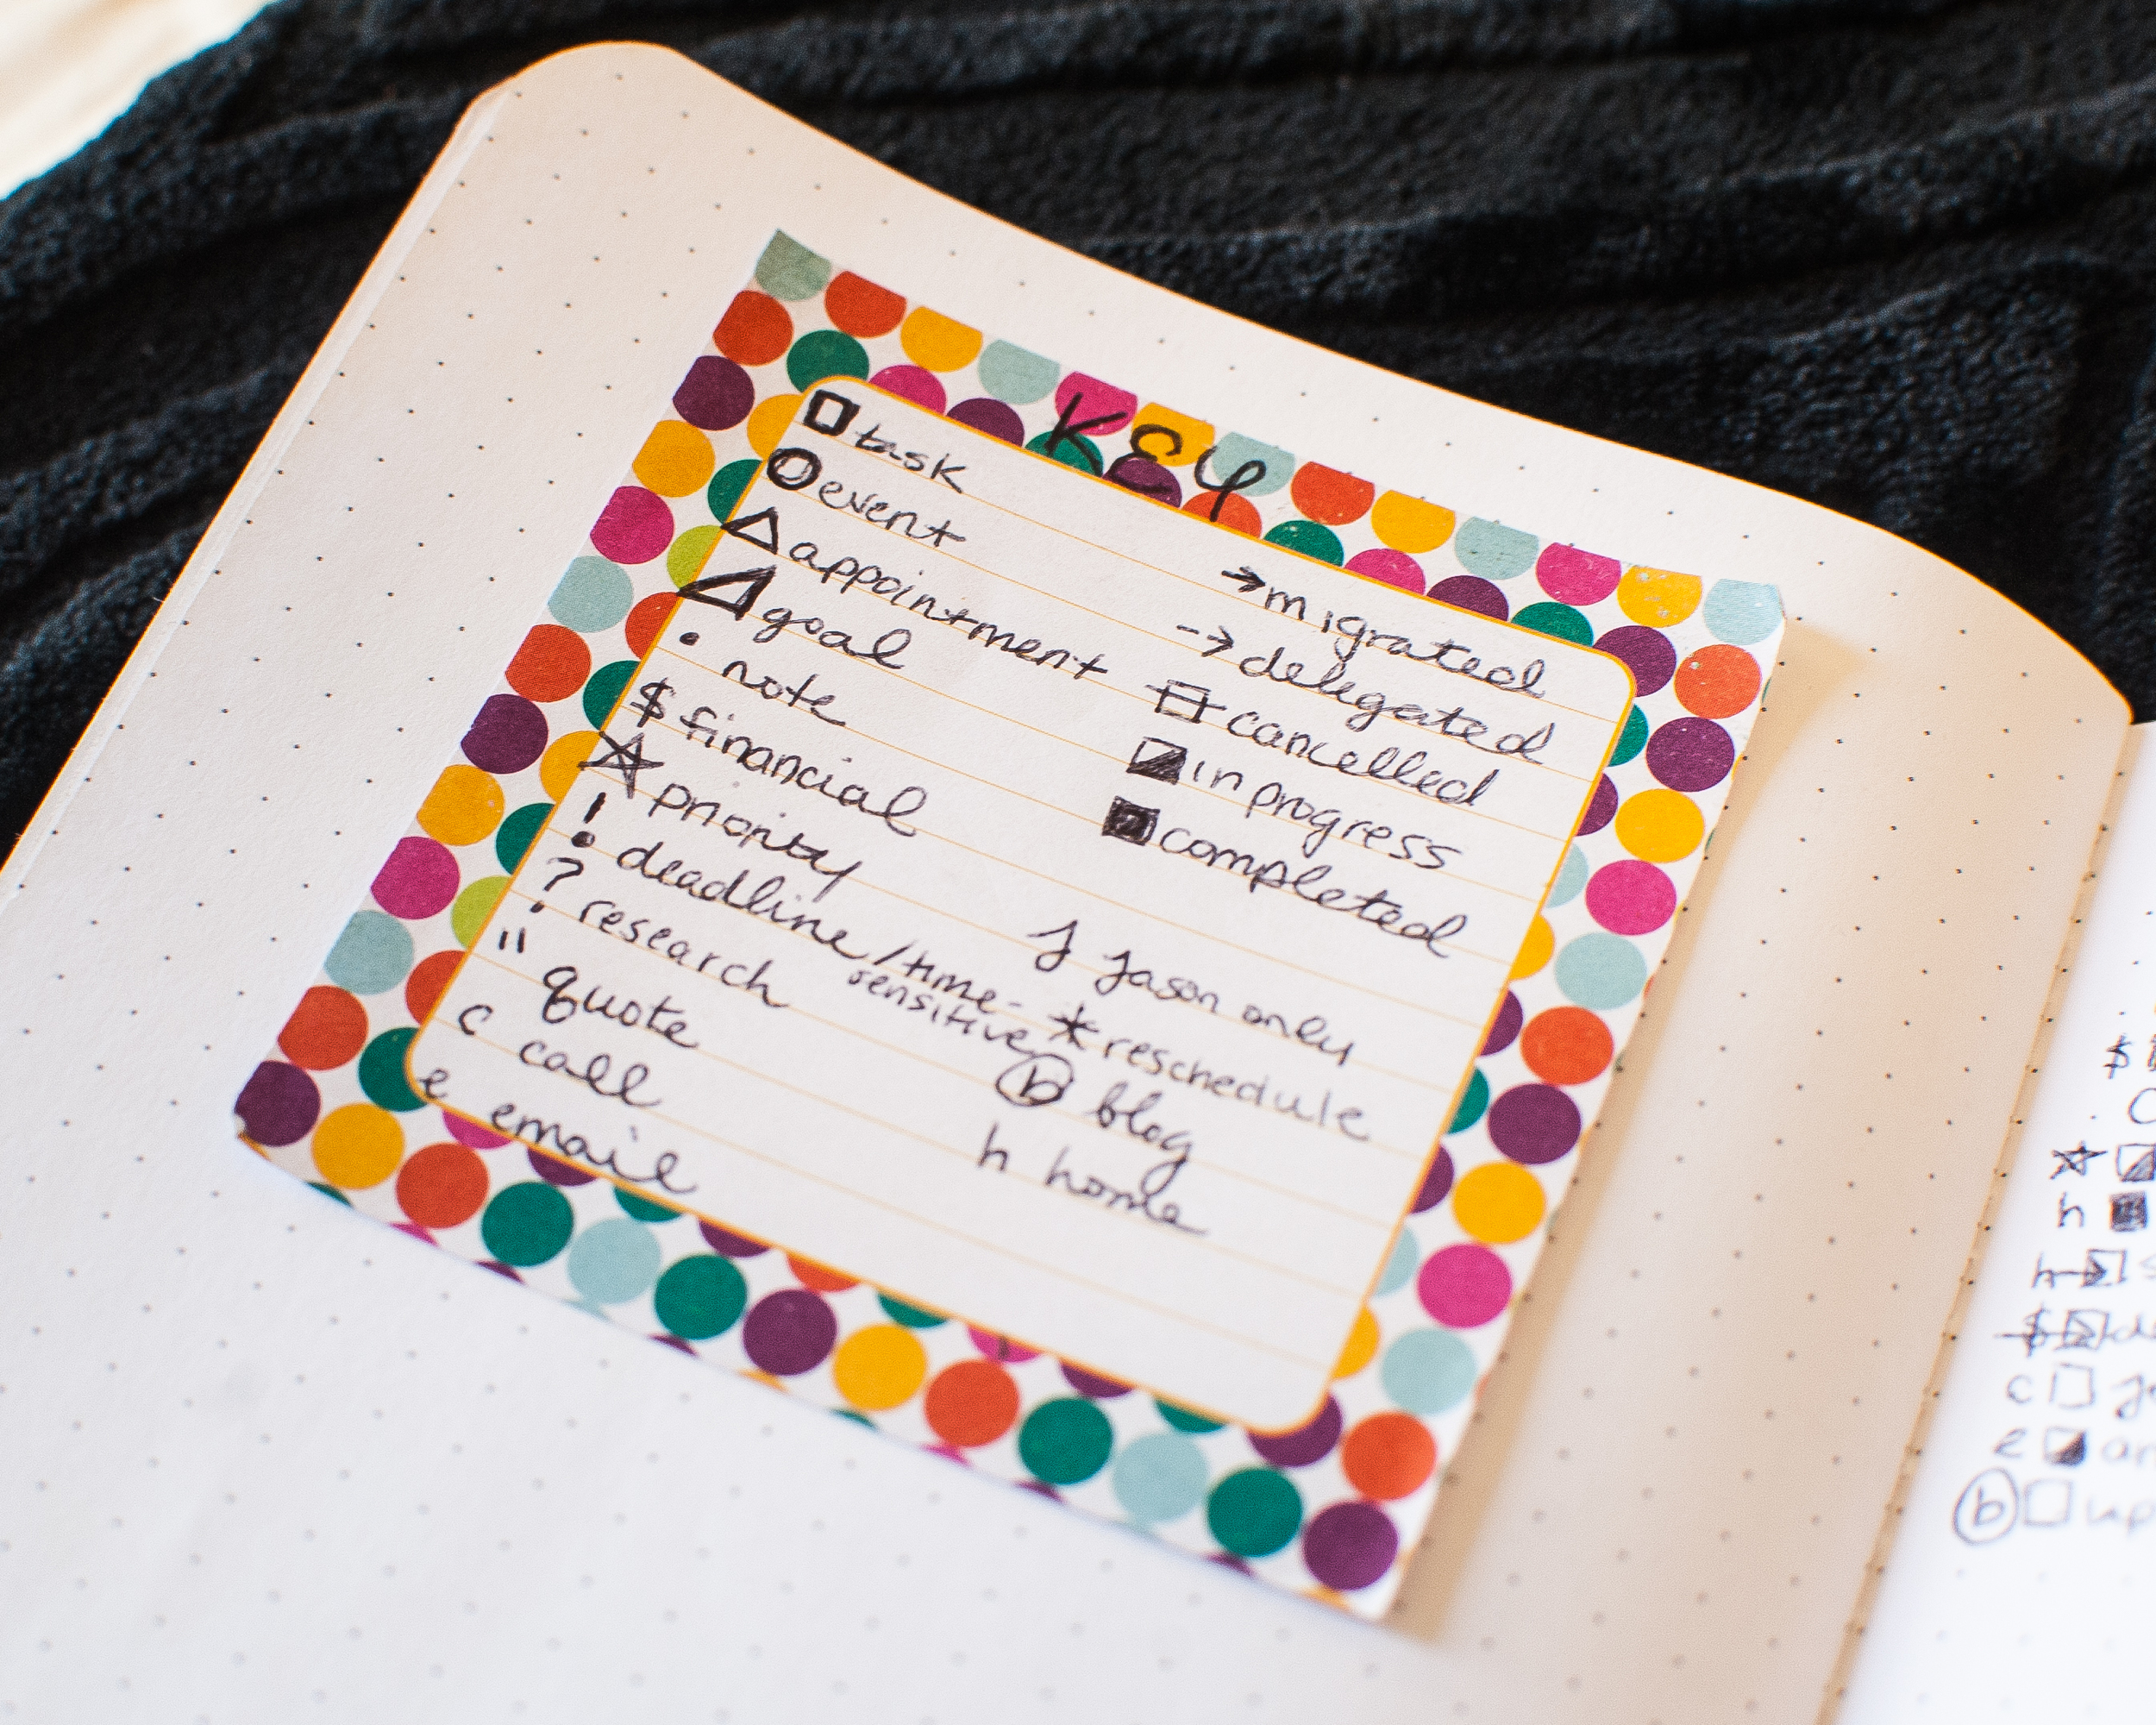 KEY
□ task
○ event
△ appointment
◿ goal
• note
$ financial
☆ priority
! deadline/time-
sensitive
? research
" quote
c call
e email
→ migrated
--> delegated
cancelled
◪ in progress
■ completed
J Jason only
* reschedule
ⓑ blog
h home
$
c
ⓑ